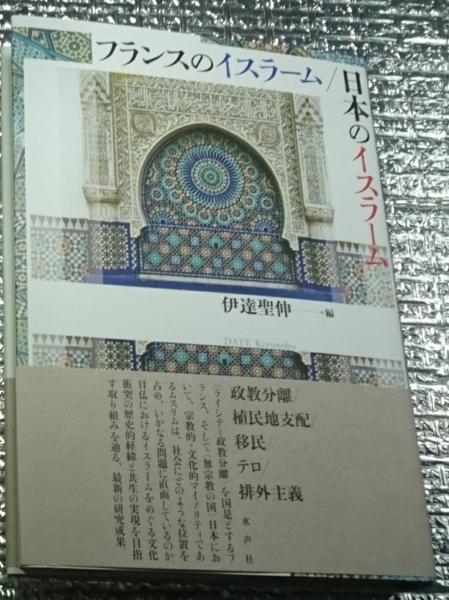 フランスのイスラーム/日本のイスラーム
伊達聖伸——編
DATE Kiyonobu
政教分離/
植民地支配/
移民/
テロ/
排外主義
〈ライシテ=政教分離〉を国是とするフ
ランス、そして〈無宗教の国〉日本にお
いて、宗教的・文化的マイノリティであ
るムスリムは、社会にどのような位置を
占め、いかなる問題に直面しているのか。
日仏におけるイスラームをめぐる文化
衝突の歴史的経緯と共生の実現を目指
す取り組みを辿る、最新の研究成果。
水声社